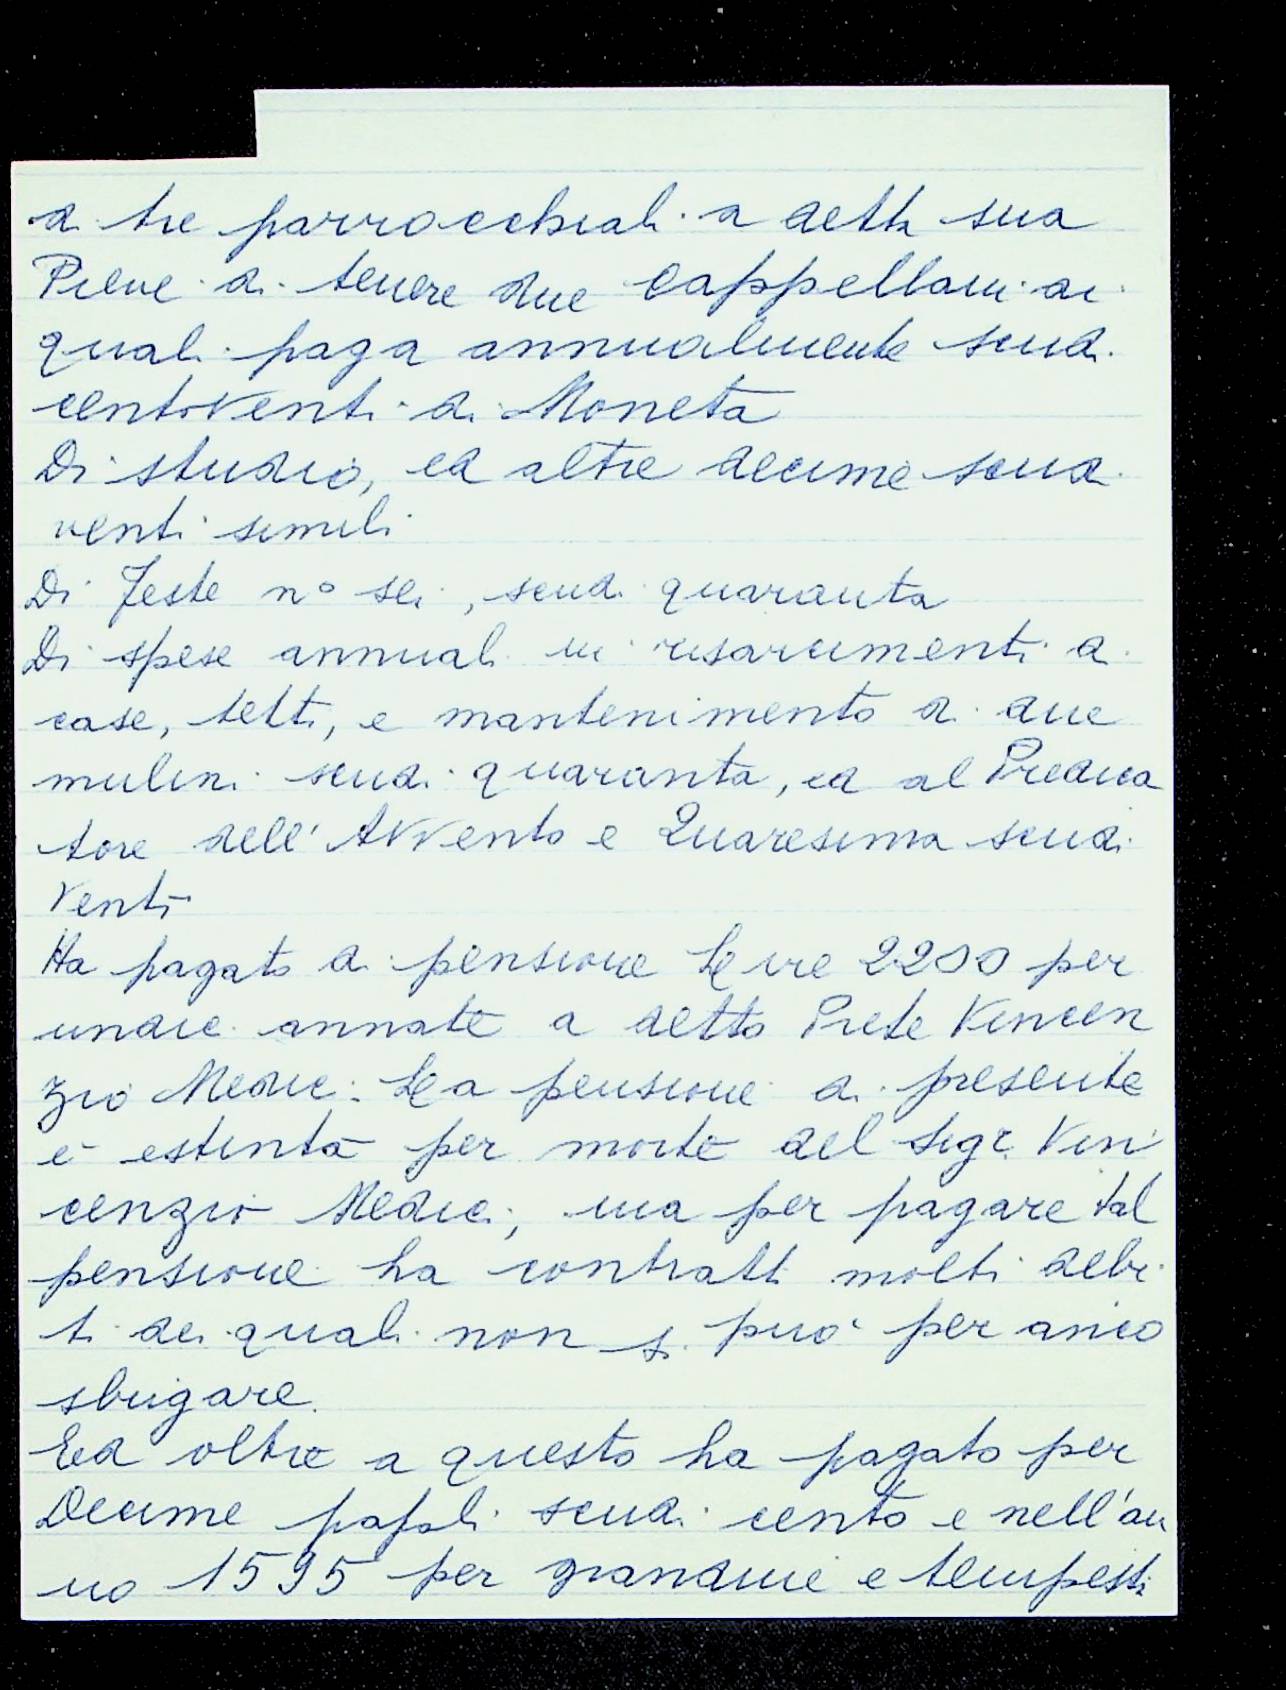 di tre parrocchiali a detta sua
Pieve di tenere due Cappellani ai
quali paga annualmente scudi
centoventi di Moneta
Di studio, ed altre decime scudi
venti simili
Di Feste n° sei, scudi quaranta
Di spese annuali in risarcimenti di
case, tetti, e mantenimento di due
mulini scudi quaranta, ed al Predica
tore dell'Avvento e Quaresima scudi
Venti
Ha pagato di pensione Lire 2200 per
undici annate a detto Prete Vincen
zio Medici. La pensione di presente
è estinta per morte del Sigr. Vin
cenzio Medici, ma per pagare tal
pensione ha contratti molti debi
ti dei quali non si può per anco
sbrigare.
Ed oltre a questo ha pagato per
Decime papali scudi cento e nell'an
no 1595 per grandine e tempesti